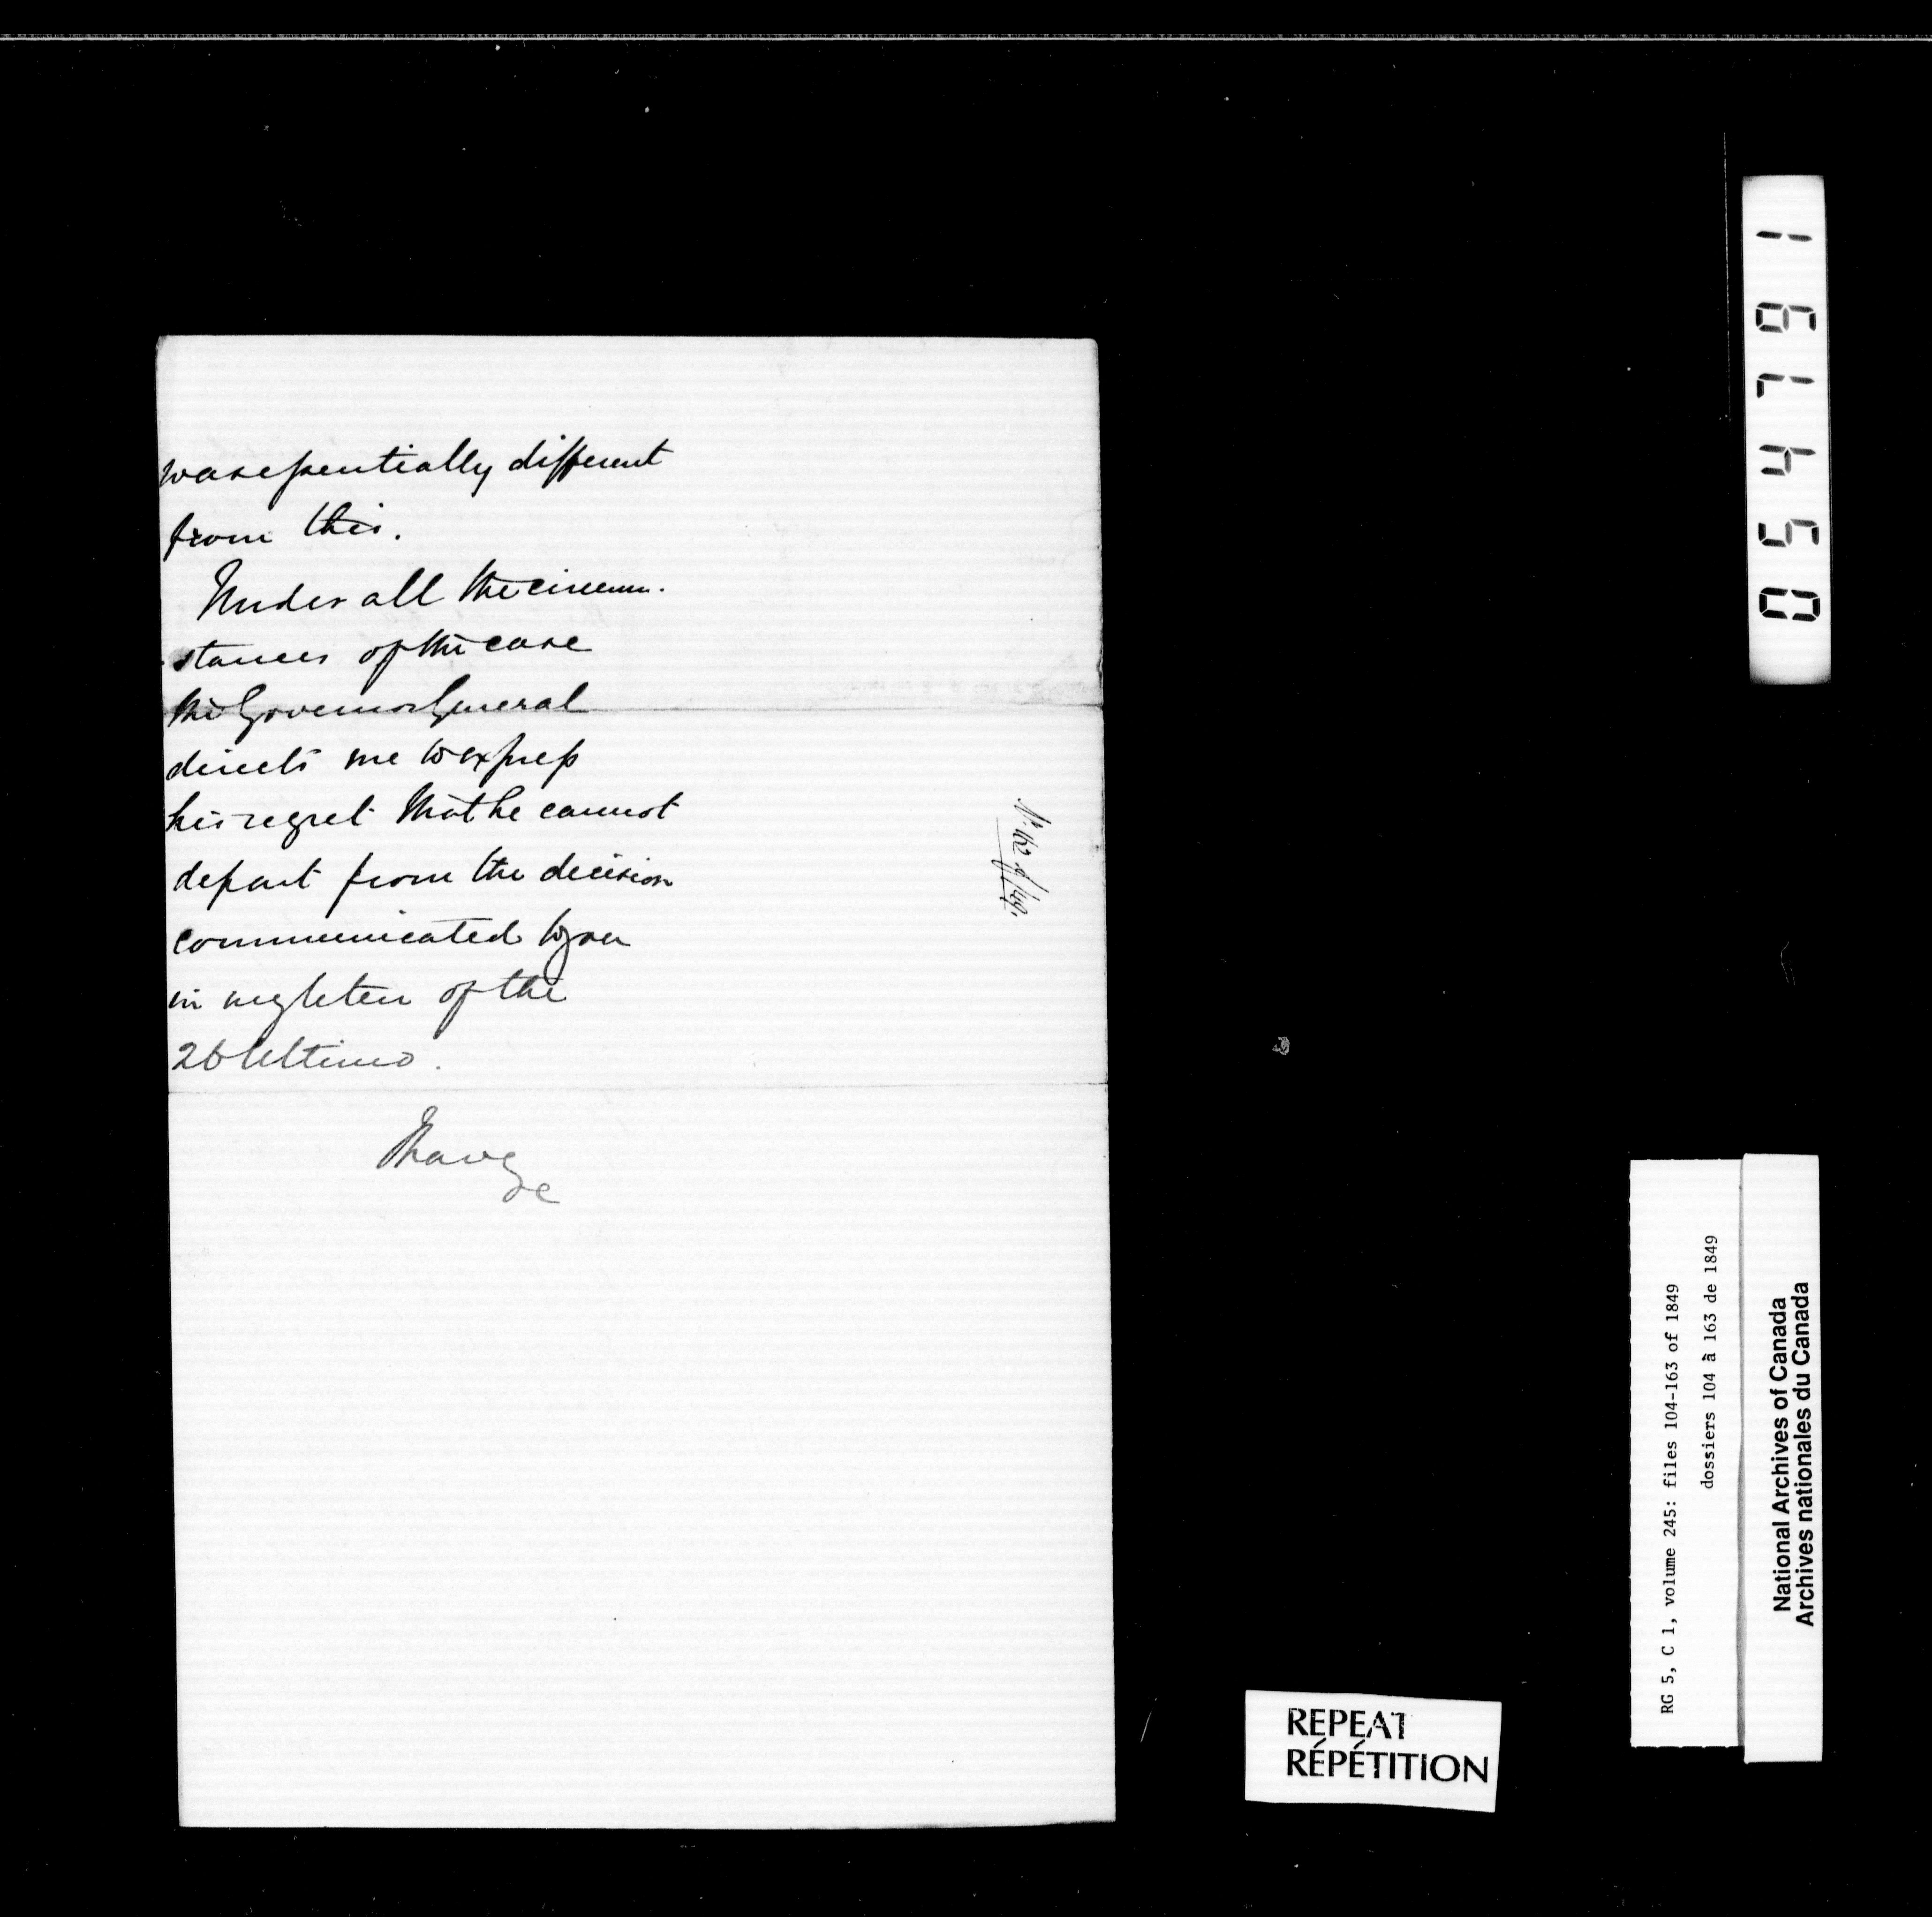 was essentially different
from this.
Under all the circum-
-stances of the case
the Governor General
directs me to express
his regret that he cannot
depart from the decision
communicated to you
in my letter of the
26 Ultimo.
I have
&c
No. 162 of /49.
054791
RG 5, C 1, volume 245: files 104-163 of 1849
dossiers 104 à 163 de 1849
National Archives of Canada
Archives nationales du Canada
REPEAT
RÉPÉTITION